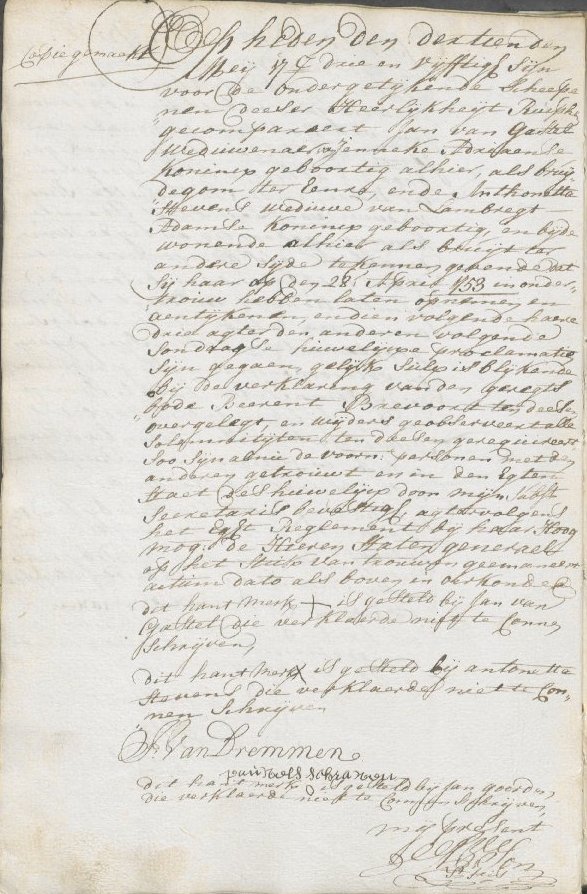 Copie gemaekt
Op heden den dertienden
Meij 17C drie en vijfftigh sijn
voor de ondergetijkende Scheepe
nen deeser Heerlijkheijt
gecompareert Jan van Gastel
Weduwenaer Jenneke Adriaense
Koninx geboortig alhier, als bruij
degom ter eenre, ende Anthonetta
Stevens weduwe van Lambregt
Adamse Koninx geboortig, en bijde
wonende alhier als bruijt ter
andere sijde te kennen gevende dat
sij haar op den 28 April 1753 in onder
trouw hebben laten opnemen en
aentijkenen, en dien volgende haere
drie agter den anderen volgende
sondraegse huwelijxe proclamatie
sijn gegaen, gelijk sulx is blijkende
bij de verklaring van den geregts
bode Beerent Brevoort ten deese
overgelegt, en wijders geobserveert alle
solemniteijten ten deesen gerequireert
soo sijn alnu de voorn. personen met den
anderen getrouwt en in den Egten
Staet des huwelijx door mijn subst
Secretaris bevestigt agtervolgens
het Egt Reglement bij haer Hoog
mog: de Heeren Staten generael
op het stuk van trouwen geemaneert
actum dato als boven in oirkonde
dit hant merk + is gestelt bij Jan van
Gastel die verklaerde niet te konne
schrijven
dit hant merk x is gestelt bij antonetta
Stevens die verklaerde niet te Con
nen schrijven
Van Dremmen
pauwels schraven
dit hant merk is gestelt bij Jan
die verklaerde niet te Connen schrijven
mij present